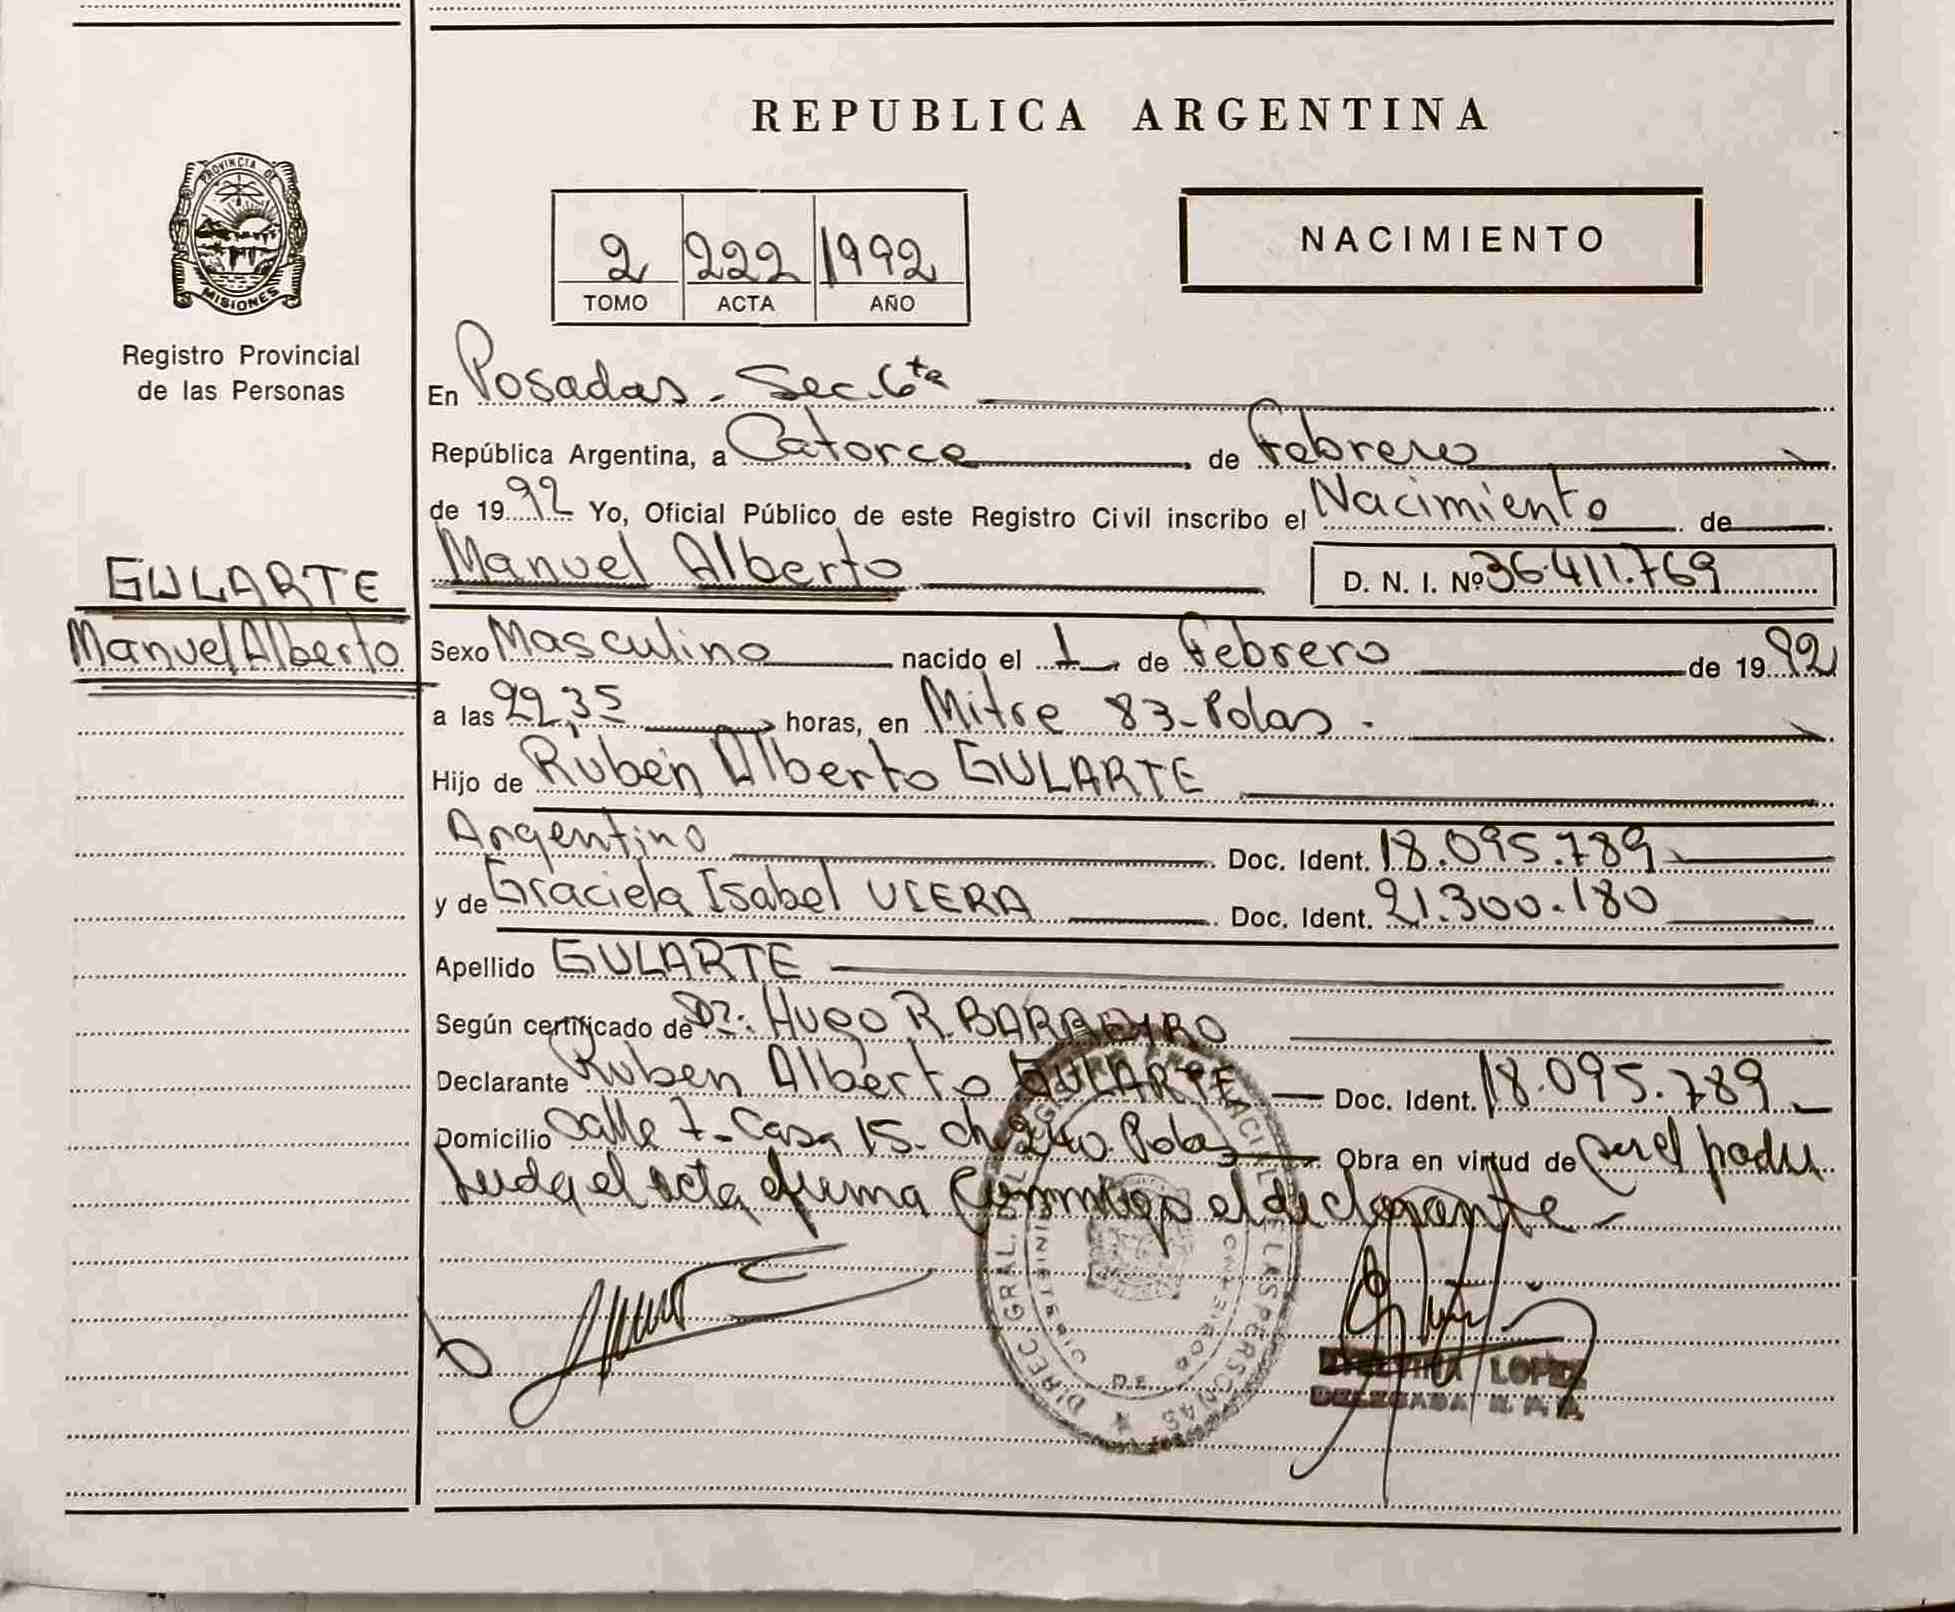 REPUBLICA ARGENTINA
PROVINCIA DE
MISIONES
Registro Provincial
de las Personas
2 222 1992
TOMO ACTA AÑO
NACIMIENTO
En Posadas - Sec. 6ta
República Argentina, a Catorce de Febrero
de 1992 Yo, Oficial Público de este Registro Civil inscribo el Nacimiento de
GULARTE
Manuel Alberto
Manuel Alberto D. N. I. Nº 36.411.769
Sexo Masculino nacido el 1 de Febrero de 1992
a las 22,35 horas, en Mitre 83 - Pdas.
Hijo de Rubén Alberto GULARTE
Argentino Doc. Ident. 18.095.789
y de Graciela Isabel VIERA Doc. Ident. 21.300.180
Apellido GULARTE
Según certificado de Dr. HUGO R. BARREYRO
Declarante Ruben Alberto GULARTE Doc. Ident. 18.095.789
Domicilio Calle 7 - Casa 15 - ch 240. Pdas Obra en virtud de ser el padre
Leida el acta firma conmigo el declarante -
DIREC. GRAL. DE LAS PERSONAS
LOPEZ
DELEGADA